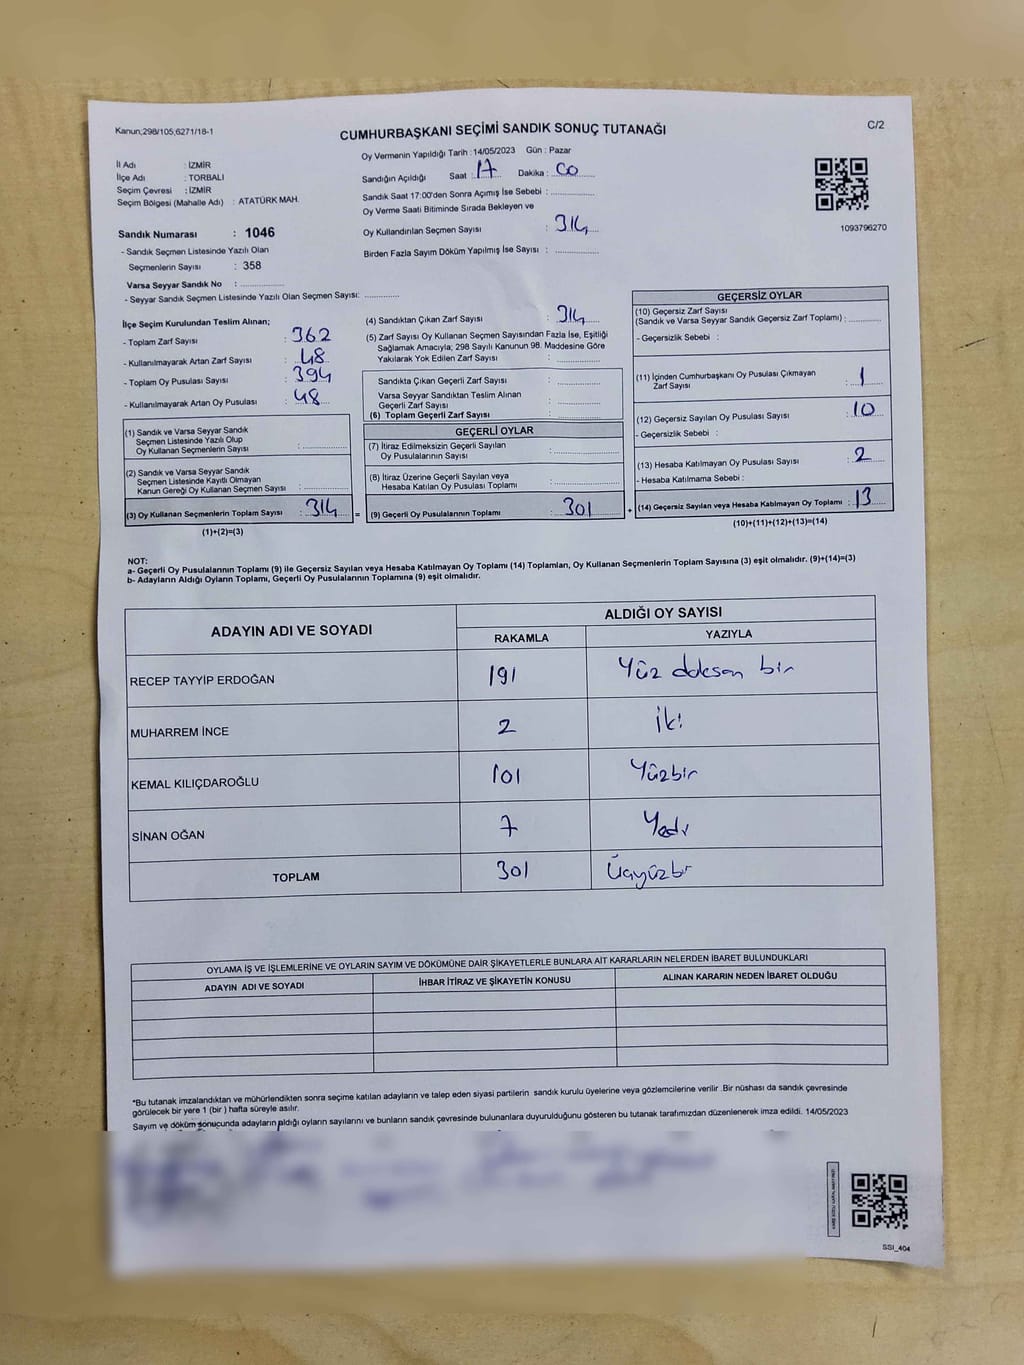 Kanun;298/105,6271/18-1
CUMHURBAŞKANI SEÇİMİ SANDIK SONUÇ TUTANAĞI
C/2
İl Adı : İZMİR
İlçe Adı : TORBALI
Seçim Çevresi : İZMİR
Seçim Bölgesi (Mahalle Adı) : ATATÜRK MAH.
Sandık Numarası : 1046
- Sandık Seçmen Listesinde Yazılı Olan
Seçmenlerin Sayısı : 358
Varsa Seyyar Sandık No :
- Seyyar Sandık Seçmen Listesinde Yazılı Olan Seçmen Sayısı:
Oy Vermenin Yapıldığı Tarih : 14/05/2023 Gün : Pazar
Sandığın Açıldığı Saat : 17 Dakika : 00
Sandık Saat 17:00'den Sonra Açılmış İse Sebebi :
Oy Verme Saati Bitiminde Sırada Bekleyen ve
Oy Kullandırılan Seçmen Sayısı : 314
Birden Fazla Sayım Döküm Yapılmış İse Sayısı :
1093796270
İlçe Seçim Kurulundan Teslim Alınan;
- Toplam Zarf Sayısı : 362
- Kullanılmayarak Artan Zarf Sayısı : 48
- Toplam Oy Pusulası Sayısı : 394
- Kullanılmayarak Artan Oy Pusulası : 48
(1) Sandık ve Varsa Seyyar Sandık
Seçmen Listesinde Yazılı Olup
Oy Kullanan Seçmenlerin Sayısı :
(2) Sandık ve Varsa Seyyar Sandık
Seçmen Listesinde Kayıtlı Olmayan
Kanun Gereği Oy Kullanan Seçmen Sayısı :
(3) Oy Kullanan Seçmenlerin Toplam Sayısı : 314
(1)+(2)=(3)
(4) Sandıktan Çıkan Zarf Sayısı : 314
(5) Zarf Sayısı Oy Kullanan Seçmen Sayısından Fazla İse, Eşitliği
Sağlamak Amacıyla; 298 Sayılı Kanunun 98. Maddesine Göre
Yakılarak Yok Edilen Zarf Sayısı :
Sandıkta Çıkan Geçerli Zarf Sayısı :
Varsa Seyyar Sandıktan Teslim Alınan
Geçerli Zarf Sayısı :
(6) Toplam Geçerli Zarf Sayısı :
GEÇERLİ OYLAR
(7) İtiraz Edilmeksizin Geçerli Sayılan
Oy Pusulalarının Sayısı :
(8) İtiraz Üzerine Geçerli Sayılan veya
Hesaba Katılan Oy Pusulası Toplamı :
= (9) Geçerli Oy Pusulalarının Toplamı : 301
GEÇERSİZ OYLAR
(10) Geçersiz Zarf Sayısı
(Sandık ve Varsa Seyyar Sandık Geçersiz Zarf Toplamı) :
- Geçersizlik Sebebi :
(11) İçinden Cumhurbaşkanı Oy Pusulası Çıkmayan
Zarf Sayısı : 1
(12) Geçersiz Sayılan Oy Pusulası Sayısı : 10
- Geçersizlik Sebebi :
(13) Hesaba Katılmayan Oy Pusulası Sayısı : 2
- Hesaba Katılmama Sebebi :
+ (14) Geçersiz Sayılan veya Hesaba Katılmayan Oy Toplamı : 13
(10)+(11)+(12)+(13)=(14)
NOT:
a- Geçerli Oy Pusulalarının Toplamı (9) ile Geçersiz Sayılan veya Hesaba Katılmayan Oy Toplamı (14) Toplamları, Oy Kullanan Seçmenlerin Toplam Sayısına (3) eşit olmalıdır. (9)+(14)=(3)
b- Adayların Aldığı Oyların Toplamı, Geçerli Oy Pusulalarının Toplamına (9) eşit olmalıdır.
ADAYIN ADI VE SOYADI
ALDIĞI OY SAYISI
RAKAMLA YAZIYLA
RECEP TAYYİP ERDOĞAN 191 Yüz doksan bir
MUHARREM İNCE 2 iki
KEMAL KILIÇDAROĞLU 101 Yüzbir
SİNAN OĞAN 7 Yedi
TOPLAM 301 Üçyüzbir
OYLAMA İŞ VE İŞLEMLERİNE VE OYLARIN SAYIM VE DÖKÜMÜNE DAİR ŞİKAYETLERLE BUNLARA AİT KARARLARIN NELERDEN İBARET BULUNDUKLARI
ADAYIN ADI VE SOYADI İHBAR İTİRAZ VE ŞİKAYETİN KONUSU ALINAN KARARIN NEDEN İBARET OLDUĞU
*Bu tutanak imzalandıktan ve mühürlendikten sonra seçime katılan adayların ve talep eden siyasi partilerin sandık kurulu üyelerine veya gözlemcilerine verilir .Bir nüshası da sandık çevresinde
görülecek bir yere 1 (bir ) hafta süreyle asılır.
Sayım ve döküm sonucunda adayların aldığı oyların sayılarını ve bunların sandık çevresinde bulunanlara duyurulduğunu gösteren bu tutanak tarafımızdan düzenlenerek imza edildi. 14/05/2023
SSI_404